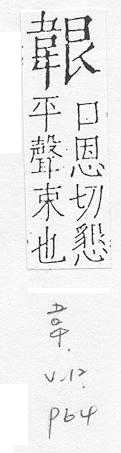 ⿰韋艮
口恩切懇
平聲束也
韋.
V.12.
P64